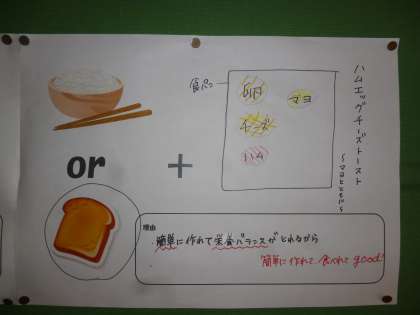 ハムエッグチーズトースト
〜マヨとともに〜
食パン
卵
マヨ
チーズ
ハム
or
+
理由
簡単に作れて栄養バランスがとれるから
簡単に作れて食べれてgood!